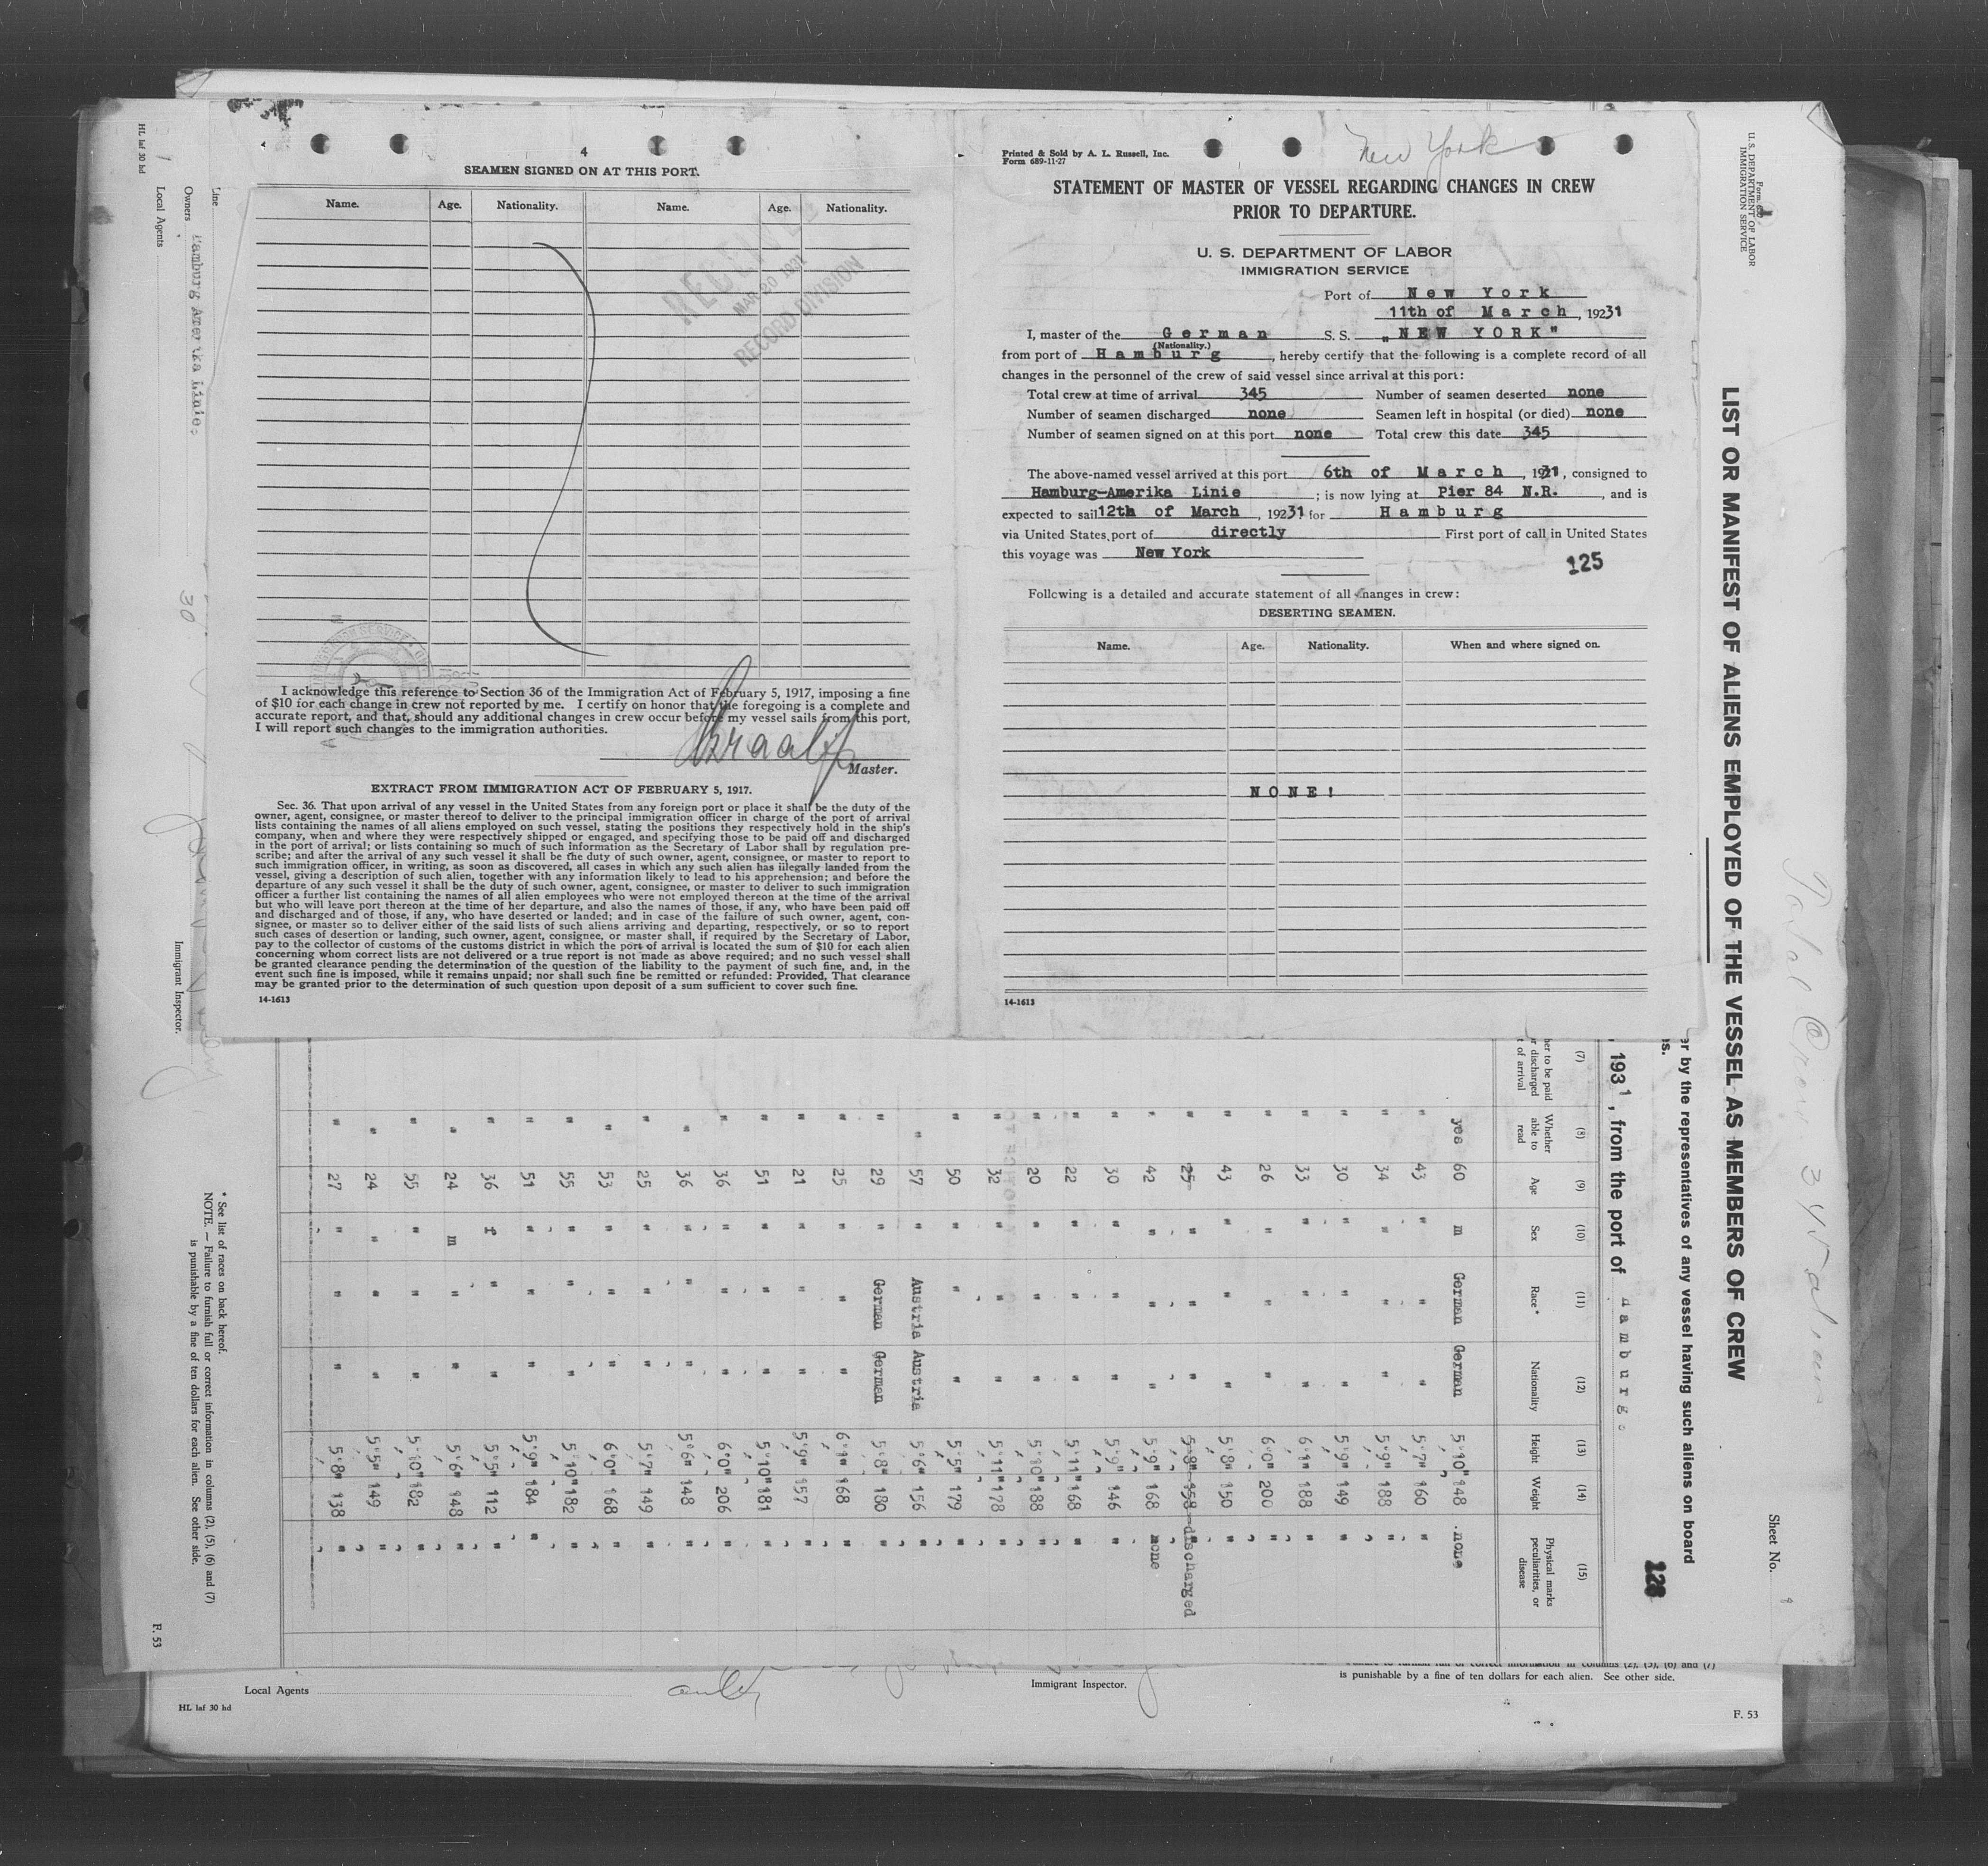 4
SEAMEN SIGNED ON AT THIS PORT.
Name. Age. Nationality. Name. Age. Nationality.
RECEIVED
MAR 20 1931
RECORD DIVISION
I acknowledge this reference to Section 36 of the Immigration Act of February 5, 1917, imposing a fine
of $10 for each change in crew not reported by me. I certify on honor that the foregoing is a complete and
accurate report, and that, should any additional changes in crew occur before my vessel sails from this port,
I will report such changes to the immigration authorities.
Master.
EXTRACT FROM IMMIGRATION ACT OF FEBRUARY 5, 1917.
Sec. 36. That upon arrival of any vessel in the United States from any foreign port or place it shall be the duty of the
owner, agent, consignee, or master thereof to deliver to the principal immigration officer in charge of the port of arrival
lists containing the names of all aliens employed on such vessel, stating the positions they respectively hold in the ship's
company, when and where they were respectively shipped or engaged, and specifying those to be paid off and discharged
in the port of arrival; or lists containing so much of such information as the Secretary of Labor shall by regulation pre-
scribe; and after the arrival of any such vessel it shall be the duty of such owner, agent, consignee, or master to report to
such immigration officer, in writing, as soon as discovered, all cases in which any such alien has illegally landed from the
vessel, giving a description of such alien, together with any information likely to lead to his apprehension; and before the
departure of any such vessel it shall be the duty of such owner, agent, consignee, or master to deliver to such immigration
officer a further list containing the names of all alien employees who were not employed thereon at the time of the arrival
but who will leave port thereon at the time of her departure, and also the names of those, if any, who have been paid off
and discharged and of those, if any, who have deserted or landed; and in case of the failure of such owner, agent, con-
signee, or master so to deliver either of the said lists of such aliens arriving and departing, respectively, or so to report
such cases of desertion or landing, such owner, agent, consignee, or master shall, if required by the Secretary of Labor,
pay to the collector of customs of the customs district in which the port of arrival is located the sum of $10 for each alien
concerning whom correct lists are not delivered or a true report is not made as above required; and no such vessel shall
be granted clearance pending the determination of the question of the liability to the payment of such fine, and, in the
event such fine is imposed, while it remains unpaid; nor shall such fine be remitted or refunded: Provided, That clearance
may be granted prior to the determination of such question upon deposit of a sum sufficient to cover such fine.
14-1613
Printed & Sold by A. L. Russell, Inc.
Form 689-11-27
New York
STATEMENT OF MASTER OF VESSEL REGARDING CHANGES IN CREW
PRIOR TO DEPARTURE.
U. S. DEPARTMENT OF LABOR
IMMIGRATION SERVICE
Port of New York
11th of March, 19231
I, master of the German S. S. „NEW YORK"
(Nationality.)
from port of Hamburg, hereby certify that the following is a complete record of all
changes in the personnel of the crew of said vessel since arrival at this port:
Total crew at time of arrival 345 Number of seamen deserted none
Number of seamen discharged none Seamen left in hospital (or died) none
Number of seamen signed on at this port none Total crew this date 345
The above-named vessel arrived at this port 6th of March, 1931, consigned to
Hamburg-Amerika Linie; is now lying at Pier 84 N.R., and is
expected to sail 12th of March, 19231 for Hamburg
via United States port of directly First port of call in United States
this voyage was New York
125
Following is a detailed and accurate statement of all changes in crew:
DESERTING SEAMEN.
Name. Age. Nationality. When and where signed on.
NONE!
14-1613
U. S. DEPARTMENT OF LABOR
IMMIGRATION SERVICE
LIST OR MANIFEST OF ALIENS EMPLOYED OF THE VESSEL AS MEMBERS OF CREW
Sheet No. 8
er by the representatives of any vessel having such aliens on board
128
, 1931, from the port of Hamburg.
(7) (8) (9) (10) (11) (12) (13) (14) (15)
her to be paid
r discharged
t of arrival
Whether
able to
read
Age Sex Race* Nationality Height Weight
Physical marks
peculiarities, or
disease
yes 60 m German German 5'10" 148 none
" 43 " " " 5'7" 160 "
" 34 " " " 5'9" 188 "
" 30 " " " 5'9" 149 "
" 33 " " " 6'1" 188 "
" 26 " " " 6'0" 200 "
" 43 " " " 5'8" 150 "
" 25 " " " 5'8" 158 discharged
" 42 " " " 5'9" 168 none
" 30 " " " 5'9" 146 "
" 22 " " " 5'11" 168 "
" 20 " " " 5'10" 188 "
" 32 " " " 5'11" 178 "
" 50 " " " 5'5" 179 "
" 57 " Austria Austria 5'6" 156 "
" 29 " German German 5'8" 180 "
" 25 " " " 6'1" 168 "
" 21 " " " 5'9" 157 "
" 51 " " " 5'10" 181 "
" 36 " " " 6'0" 206 "
" 36 " " " 5'6" 148 "
" 25 " " " 5'7" 149 "
" 53 " " " 6'0" 168 "
" 55 " " " 5'10" 182 "
" 51 " " " 5'9" 184 "
" 36 f " " 5'5" 112 "
" 24 m " " 5'6" 148 "
" 55 " " " 5'10" 182 "
" 24 " " " 5'5" 149 "
" 27 " " " 5'8" 138 "
* See list of races on back hereof.
NOTE. — Failure to furnish full or correct information in columns (2), (5), (6) and (7)
is punishable by a fine of ten dollars for each alien. See other side.
F. 53
Line
Owners Hamburg Amerika Linie.
Local Agents
Immigrant Inspector.
HL laf 30 hd
30
Local Agents
Immigrant Inspector.
is punishable by a fine of ten dollars for each alien. See other side.
HL laf 30 hd
F. 53